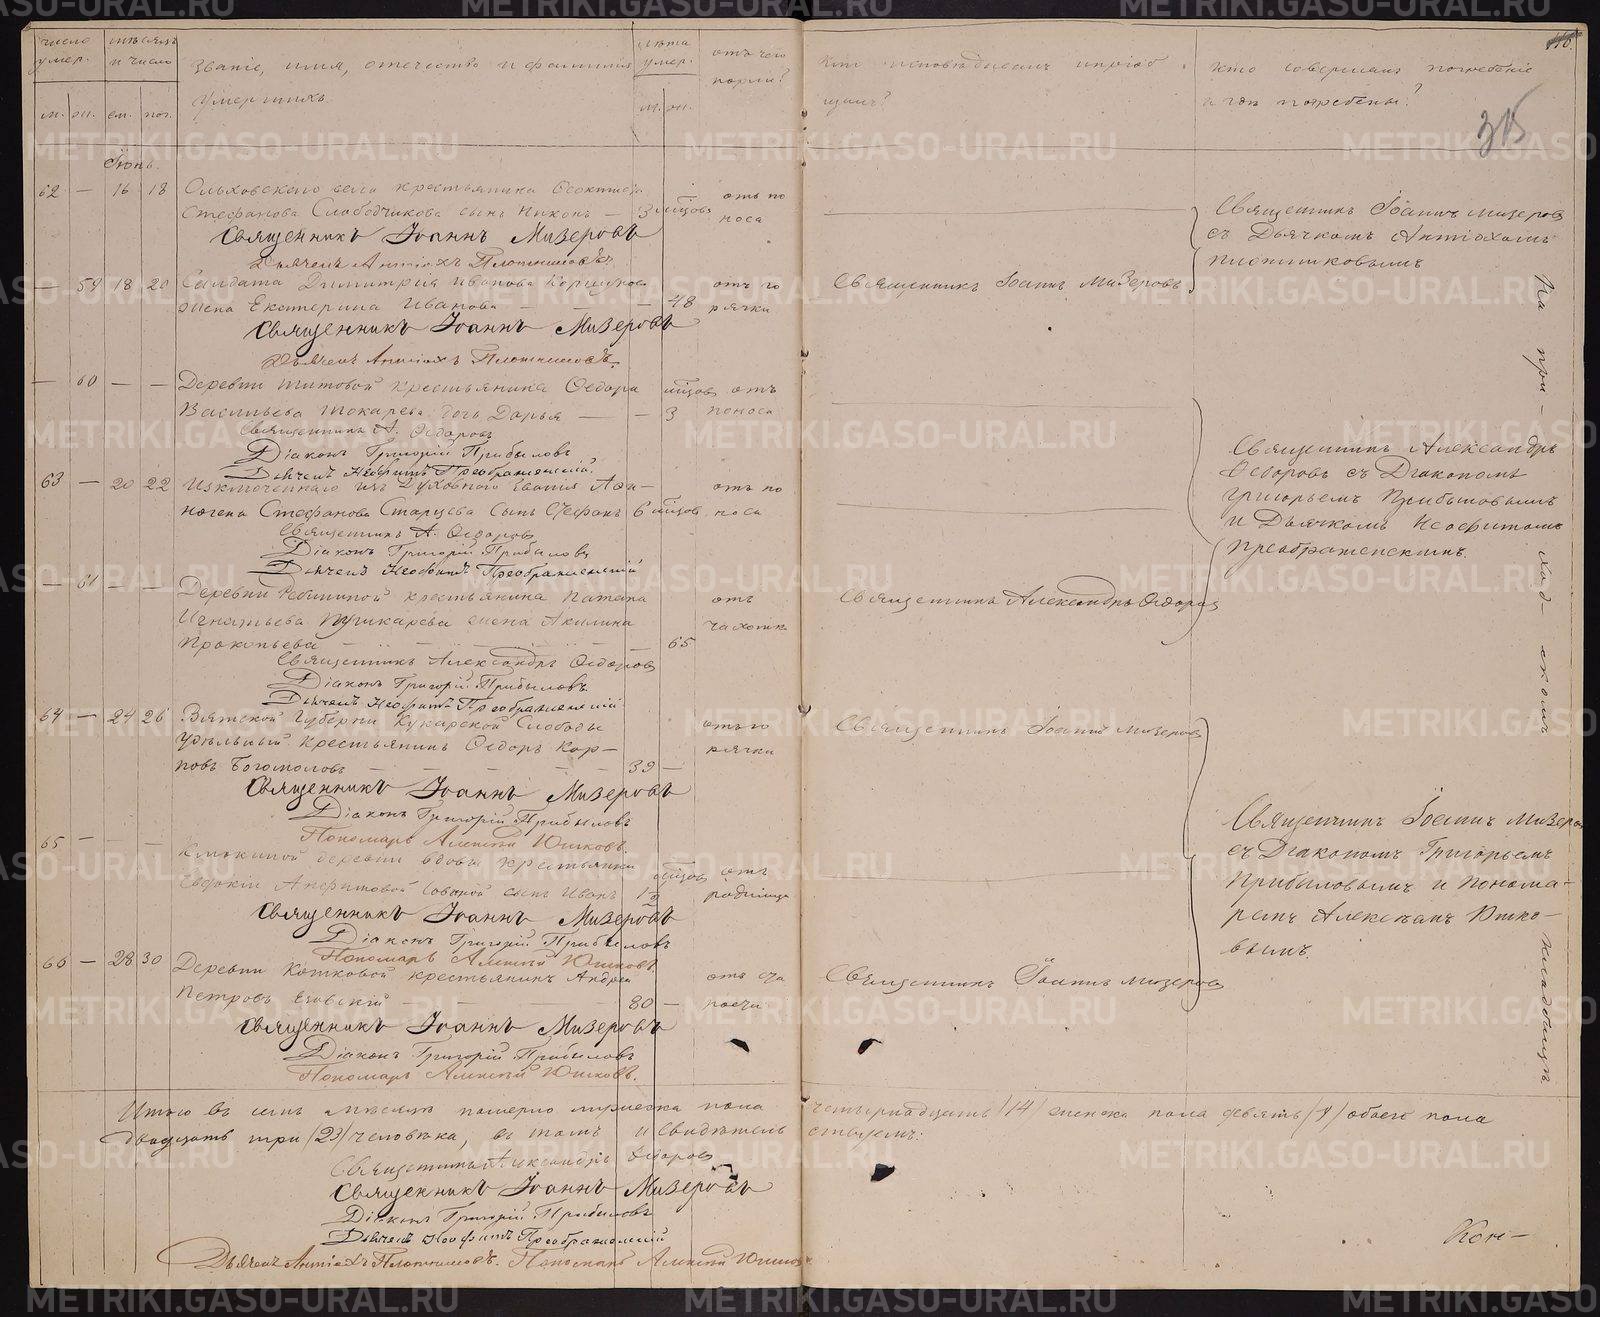 число умер.
мѣсяцъ и число
Званіе, имя, отечество и фамилія умершихъ.
лѣта умер.
отъ чего померли?
Кто исповѣдывалъ и пріобщалъ?
Кто совершалъ погребеніе и гдѣ погребены?
м. ж. ем. пог.
м. ж.
315
Іюнь.
62 — 16 18 Ольховскаго села крестьянина Ѳеоктиста
Стефанова Слободчикова сынъ Никонъ — 3 мѣсяцовъ
отъ поноса
Священникъ Іоаннъ Мизеровъ
Дьячекъ Антіохъ Плотниковъ
Священникъ Іоаннъ Мизеровъ
съ Дьячкомъ Антіохомъ
Плотниковымъ
— 59 18 20 Солдата Димитрія Иванова Коршунова
жена Екатерина Иванова — — 48
отъ горячки
Священникъ Іоаннъ Мизеровъ
Священникъ Іоаннъ Мизеровъ
Дьячекъ Антіохъ Плотниковъ.
— 60 — — Деревни Титовой крестьянина Ѳедора
Васильева Токарева дочь Дарья — — 3 мѣсяцовъ
отъ поноса
Священникъ А. Ѳедоровъ
Діаконъ Григорій Прибыловъ
Дьячекъ Неофитъ Преображенскій.
Священникъ Александръ
Ѳедоровъ съ Діакономъ
Григорьемъ Прибыловымъ
и Дьячкомъ Неофитомъ
Преображенскимъ.
63 — 20 22 Изключеннаго изъ Духовнаго званія Аѳи-
ногена Стефанова Старцева сынъ Стефанъ 6 мѣсяцов.
отъ поноса
Священникъ А. Ѳедоровъ
Діаконъ Григорій Прибыловъ
Дьячекъ Неофитъ Преображенскій
— 61 — — Деревни крестьянина Патапа
Игнатьева Пушкарева жена Акилина
Прокопьева — — — — 65
отъ чахотки
Священникъ Александръ Ѳедоровъ
Священникъ Александръ Ѳедоровъ
Діаконъ Григорій Прибыловъ
Дьячекъ Неофитъ Преображенскій
64 — 24 26 Вятской Губерніи Кукарской Слободы
удѣльный крестьянинъ Ѳедоръ Кар-
повъ Богомоловъ — — — 39 —
отъ горячки
Священникъ Іоаннъ Мизеровъ
Священникъ Іоаннъ Мизеровъ
Діаконъ Григорій Прибыловъ
Пономарь Алексѣй Юшковъ.
65 — — — деревни вдовы крестьянки
Евдокіи сынъ Иванъ мѣсяцов
отъ родимца
Священникъ Іоаннъ Мизеровъ
Діаконъ Григорій Прибыловъ
Пономарь Алексѣй Юшковъ
Священникъ Іоаннъ Мизеровъ
съ Діакономъ Григорьемъ
Прибыловымъ и Понома-
ремъ Алексѣемъ Юшко-
вымъ.
66 — 28 30 Деревни Кошковой крестьянинъ Андрей
Петровъ — 80 —
Священникъ Іоаннъ Мизеровъ
Священникъ Іоаннъ Мизеровъ
Діаконъ Григорій Прибыловъ
Пономарь Алексѣй Юшковъ.
На при-ходскомъ кладбищѣ
Итого въ семъ мѣсяцѣ померло мужеска пола четырнадцать /14/ женска пола девять /9/ обоего пола
двадцать три /23/ человѣка, въ томъ и свидѣтельствуемъ:
Священникъ Александръ Ѳедоровъ
Священникъ Іоаннъ Мизеровъ
Діаконъ Григорій Прибыловъ
Дьячекъ Неофитъ Преображенскій
Дьячекъ Антіохъ Плотниковъ. Пономарь Алексѣй Юшковъ
Кон-
METRIKI.GASO-URAL.RU